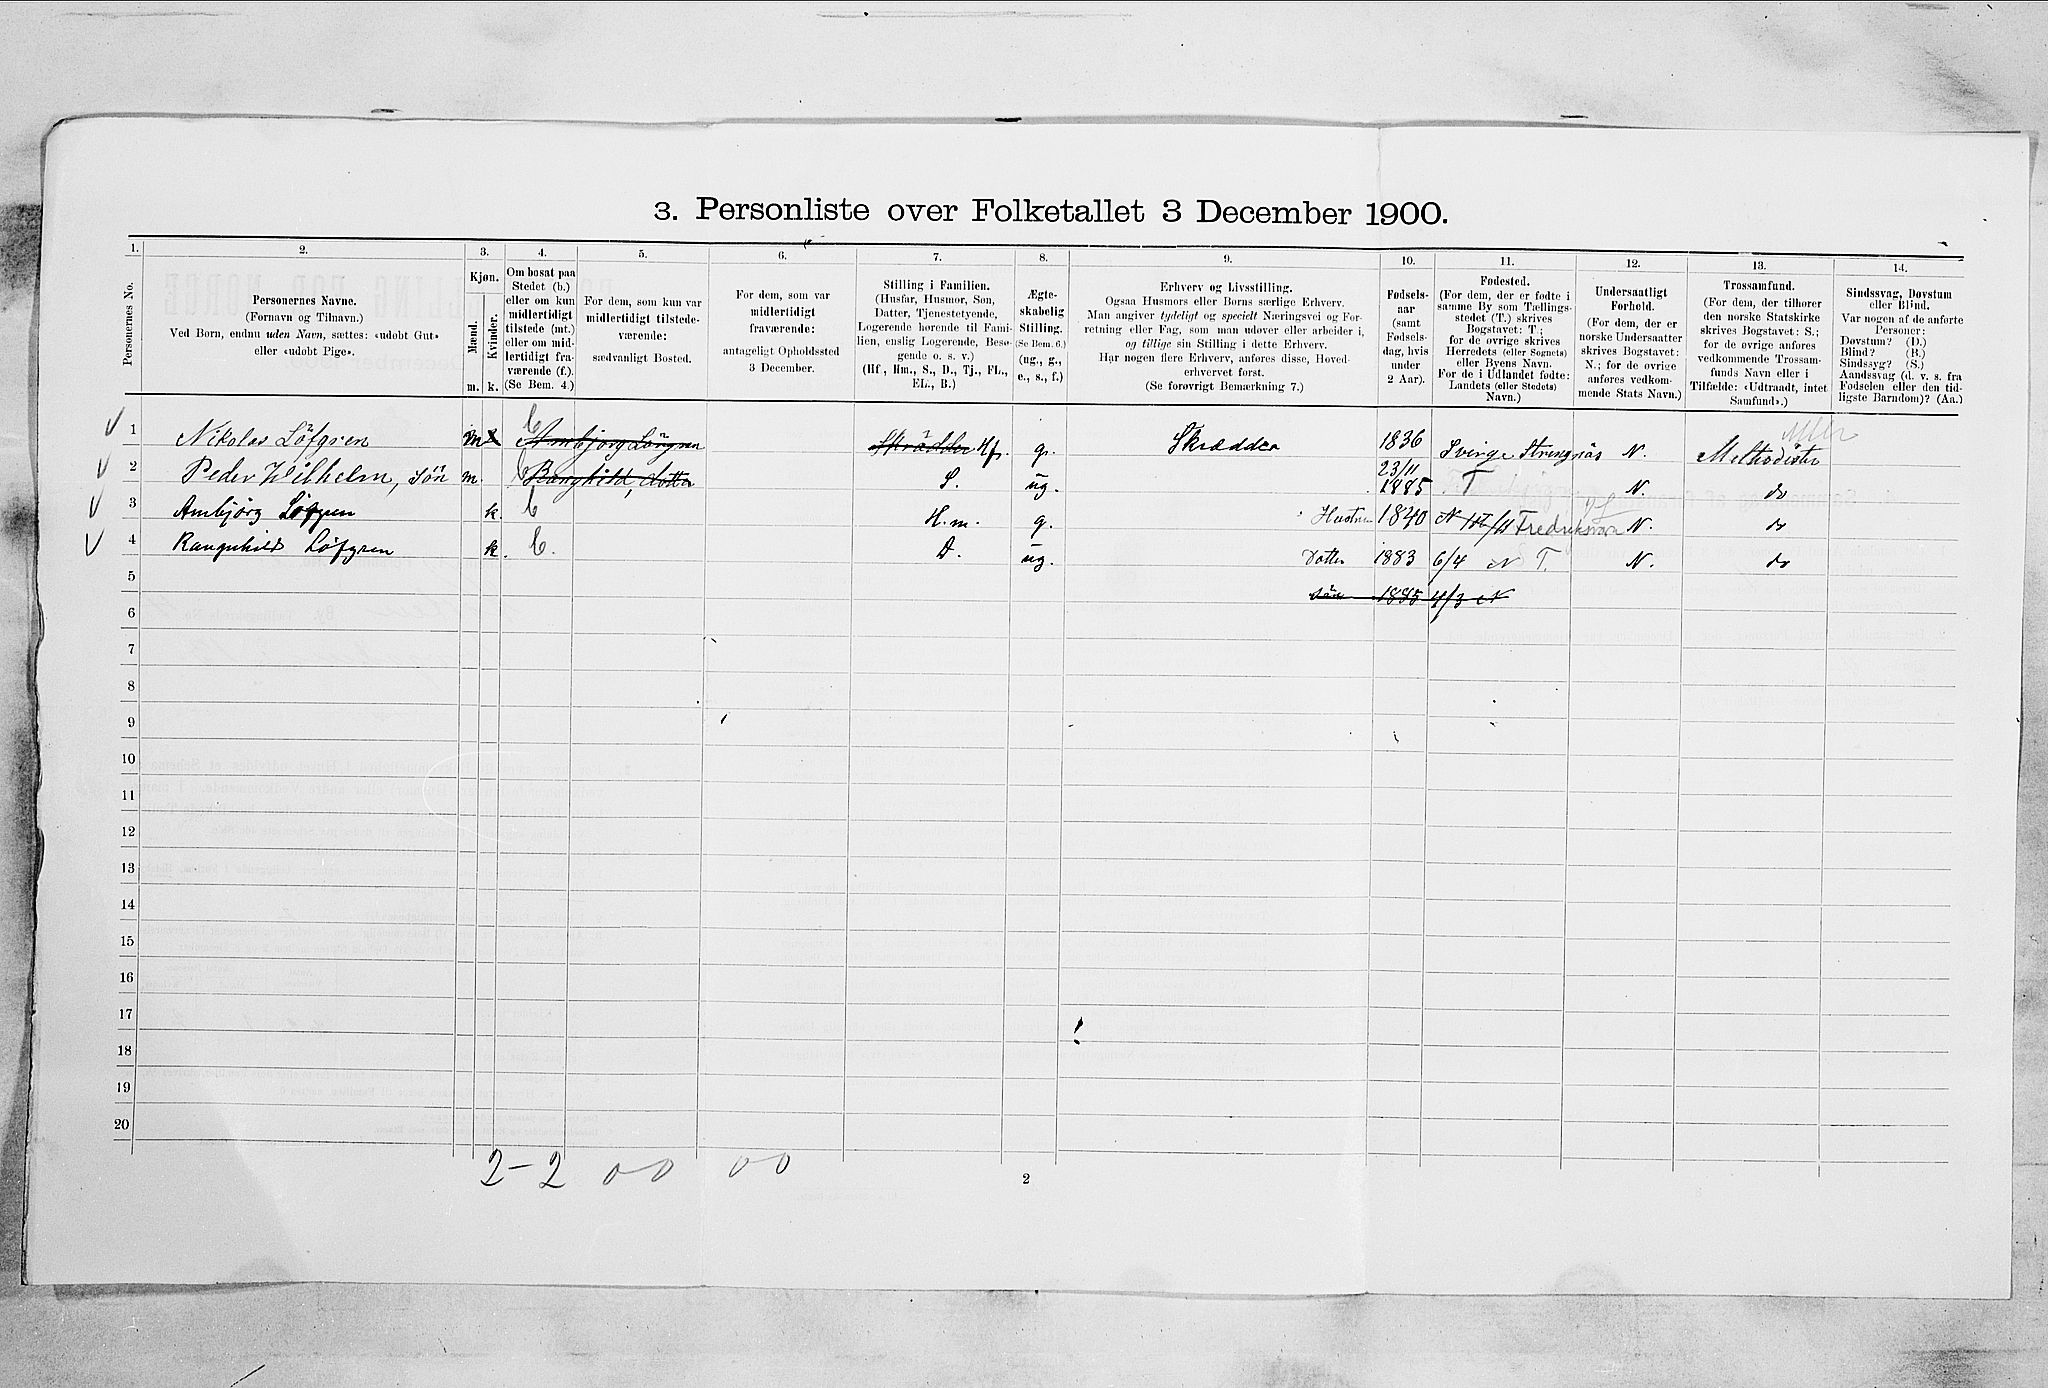 3. Personliste over Folketallet 3 December 1900.
1. 2. 3. 4. 5. 6. 7. 8. 9. 10. 11. 12. 13. 14.
Personernes No.
Personernes Navne.
(Fornavn og Tilnavn.)
Ved Børn, endnu uden Navn, sættes: «udøbt Gut»
eller «udøbt Pige».
Kjøn.
Mænd.
Kvinder.
m. k.
Om bosat paa
Stedet (b.)
eller om kun
midlertidigt
tilstede (mt.)
eller om mid-
lertidigt fra-
værende (f.).
(Se Bem. 4.)
For dem, som kun var
midlertidigt tilstede-
værende:
sædvanligt Bosted.
For dem, som var
midlertidigt
fraværende:
antageligt Opholdssted
3 December.
Stilling i Familien.
(Husfar, Husmor, Søn,
Datter, Tjenestetyende,
Logerende hørende til Fami-
lien, enslig Logerende, Besø-
gende o. s. v.)
(Hf., Hm., S., D., Tj., FL.,
EL., B.)
Ægte-
skabelig
Stilling.
(Se Bem. 6.)
(ug., g.,
e., s., f.)
Erhverv og Livsstilling.
Ogsaa Husmors eller Børns særlige Erhverv.
Man angiver tydeligt og specielt Næringsvei og For-
retning eller Fag, som man udøver eller arbeider i,
og tillige sin Stilling i dette Erhverv.
Har nogen flere Erhverv, anføres disse, Hoved-
erhvervet først.
(Se forøvrigt Bemærkning 7.)
Fødsels-
aar
(samt
Fødsels-
dag, hvis
under
2 Aar).
Fødested.
(For dem, der er fødte i
samme By som Tællings-
stedet (T.) skrives
Bogstavet: T.;
for de øvrige skrives
Herredets (eller Sognets)
eller Byens Navn.
For de i Udlandet fødte:
Landets (eller Stedets)
Navn.)
Undersaatligt
Forhold.
(For dem, der er
norske Undersaatter
skrives Bogstavet:
N.; for de øvrige
anføres vedkom-
mende Stats Navn.)
Trossamfund.
(For dem, der tilhører
den norske Statskirke
skrives Bogstavet: S.;
for de øvrige anføres
vedkommende Trossam-
funds Navn eller i
Tilfælde: «Udtraadt, intet
Samfund».)
Sindssvag, Døvstum
eller Blind.
Var nogen af de anførte
Personer:
Døvstum? (D.)
Blind? (B.)
Sindssyg? (S.)
Aandssvag (d. v. s. fra
Fødselen eller den tid-
ligste Barndom)? (Aa.)
1 Nikolai Löfgren m Ambjørg Löfgren Skrädder Hf. g. Skrædder 1836 Sverige Strengnäs N. Methodister
2 Peder Wilhelm, Sön m. b Ranghild, dotter S. ug. 23/11 1885 T N. do
3 Ambjörg Löfgren k. b H.m. g. Hustru 1840 Fredriksværn N. do
4 Rangnhild Löfgren k. b. D. ug. Dotter 1883 6/4 N T. N. do
5 Sön 1885 4/3 N
6
7
8
9
10
11
12
13
14
15
16
17
18
19
20
2-2 0 0 0 0
2